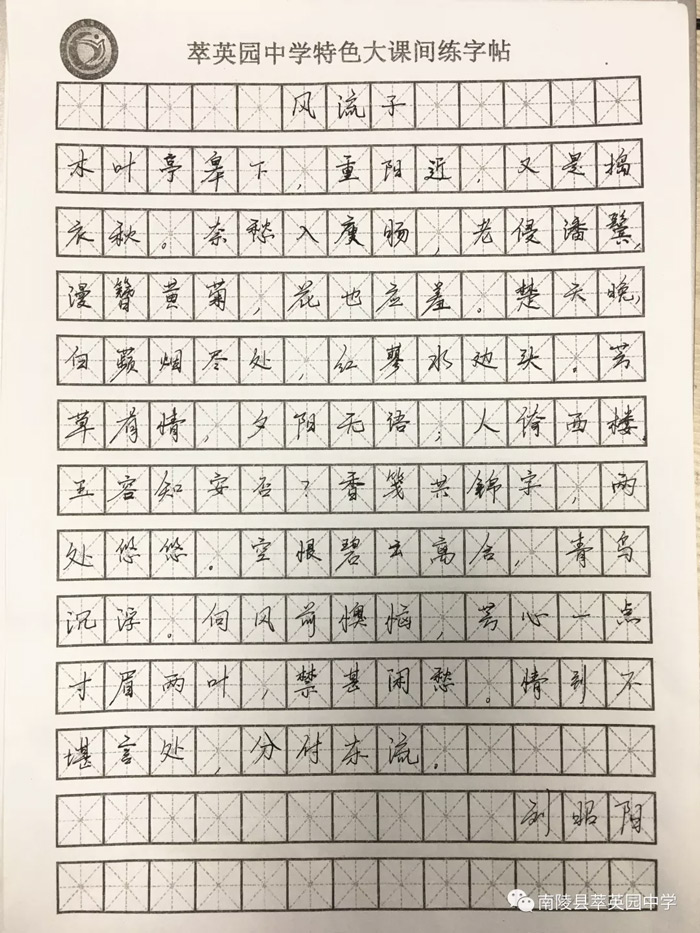 萃英园中学特色大课间练字帖
风流子
木叶亭皋下，重阳近，又是捣
衣秋。奈愁入庾肠，老侵潘鬓，
漫簪黄菊，花也应羞。楚天晚，
白蘋烟尽处，红蓼水边头。芳
草有情，夕阳无语；人倚西楼，
玉容知安否？香笺共錦字，两
处悠悠。空恨碧云离合，青鸟
沉浮。向风前懊恼，芳心一点
寸眉两叶，禁甚闲愁。情到不
堪言处，分付东流。
刘昭阳
南陵县萃英园中学